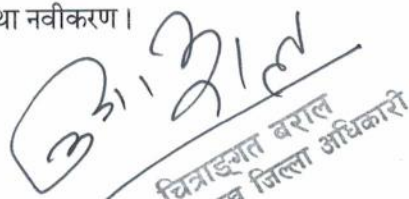 था नवीकरण ।
चित्राङ्गत बराल
जिल्ला अधिकारी